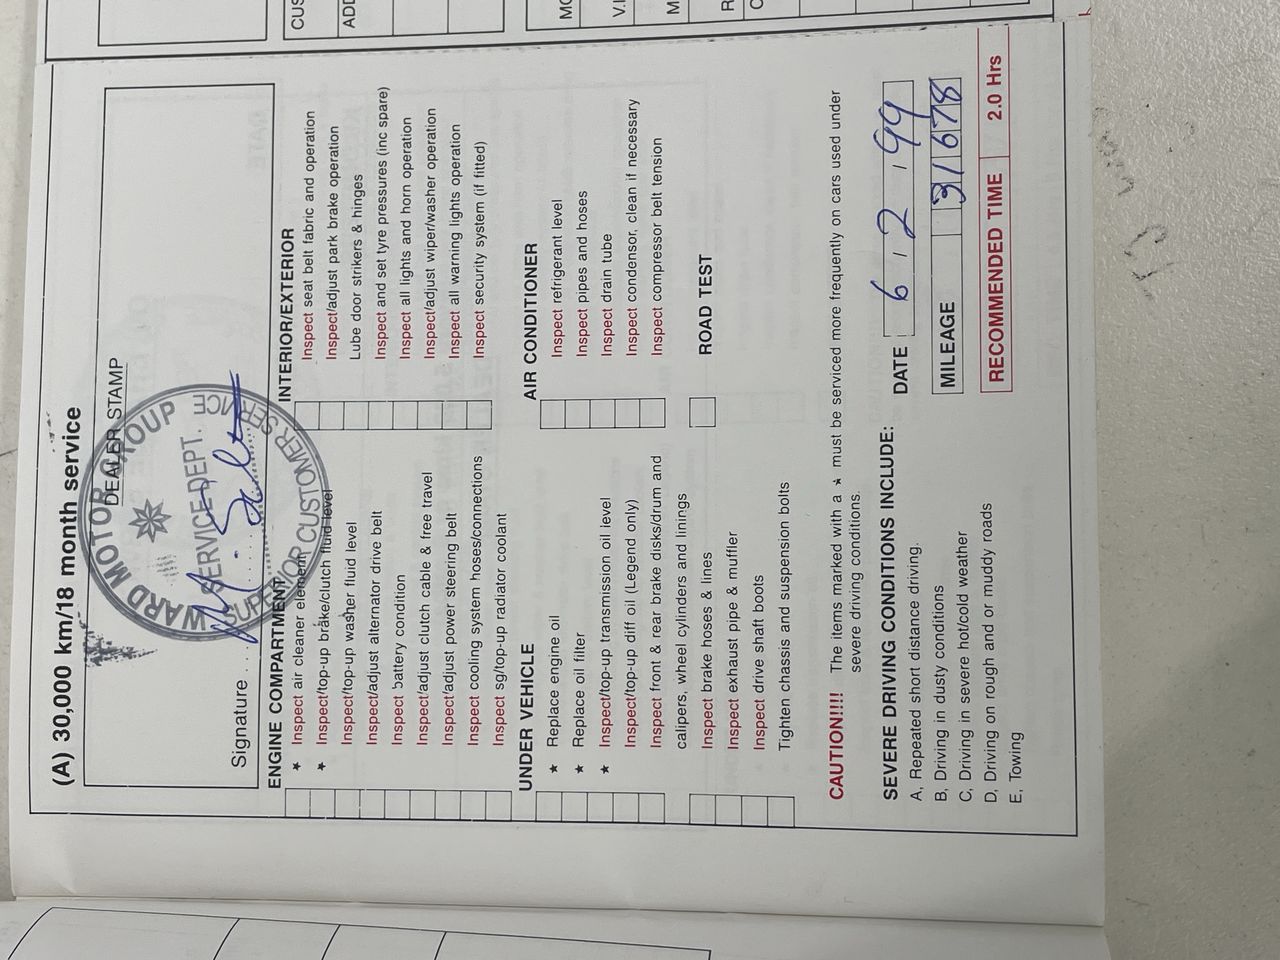 (A) 30,000 km/18 month service
DEALER STAMP
WARD MOTOR GROUP
SERVICE DEPT.
SUPERIOR CUSTOMER SERVICE
Signature
ENGINE COMPARTMENT
★ Inspect air cleaner element
★ Inspect/top-up brake/clutch fluid level
Inspect/top-up washer fluid level
Inspect/adjust alternator drive belt
Inspect battery condition
Inspect/adjust clutch cable & free travel
Inspect/adjust power steering belt
Inspect cooling system hoses/connections
Inspect sg/top-up radiator coolant
UNDER VEHICLE
★ Replace engine oil
★ Replace oil filter
★ Inspect/top-up transmission oil level
Inspect/top-up diff oil (Legend only)
Inspect front & rear brake disks/drum and
calipers, wheel cylinders and linings
Inspect brake hoses & lines
Inspect exhaust pipe & muffler
Inspect drive shaft boots
Tighten chassis and suspension bolts
INTERIOR/EXTERIOR
Inspect seat belt fabric and operation
Inspect/adjust park brake operation
Lube door strikers & hinges
Inspect and set tyre pressures (inc spare)
Inspect all lights and horn operation
Inspect/adjust wiper/washer operation
Inspect all warning lights operation
Inspect security system (if fitted)
AIR CONDITIONER
Inspect refrigerant level
Inspect pipes and hoses
Inspect drain tube
Inspect condensor, clean if necessary
Inspect compressor belt tension
ROAD TEST
CAUTION!!!! The items marked with a ★ must be serviced more frequently on cars used under
severe driving conditions.
SEVERE DRIVING CONDITIONS INCLUDE:
A, Repeated short distance driving.
B, Driving in dusty conditions
C, Driving in severe hot/cold weather
D, Driving on rough and or muddy roads
E, Towing
DATE 6 . 2 . 99
MILEAGE 31678
RECOMMENDED TIME 2.0 Hrs